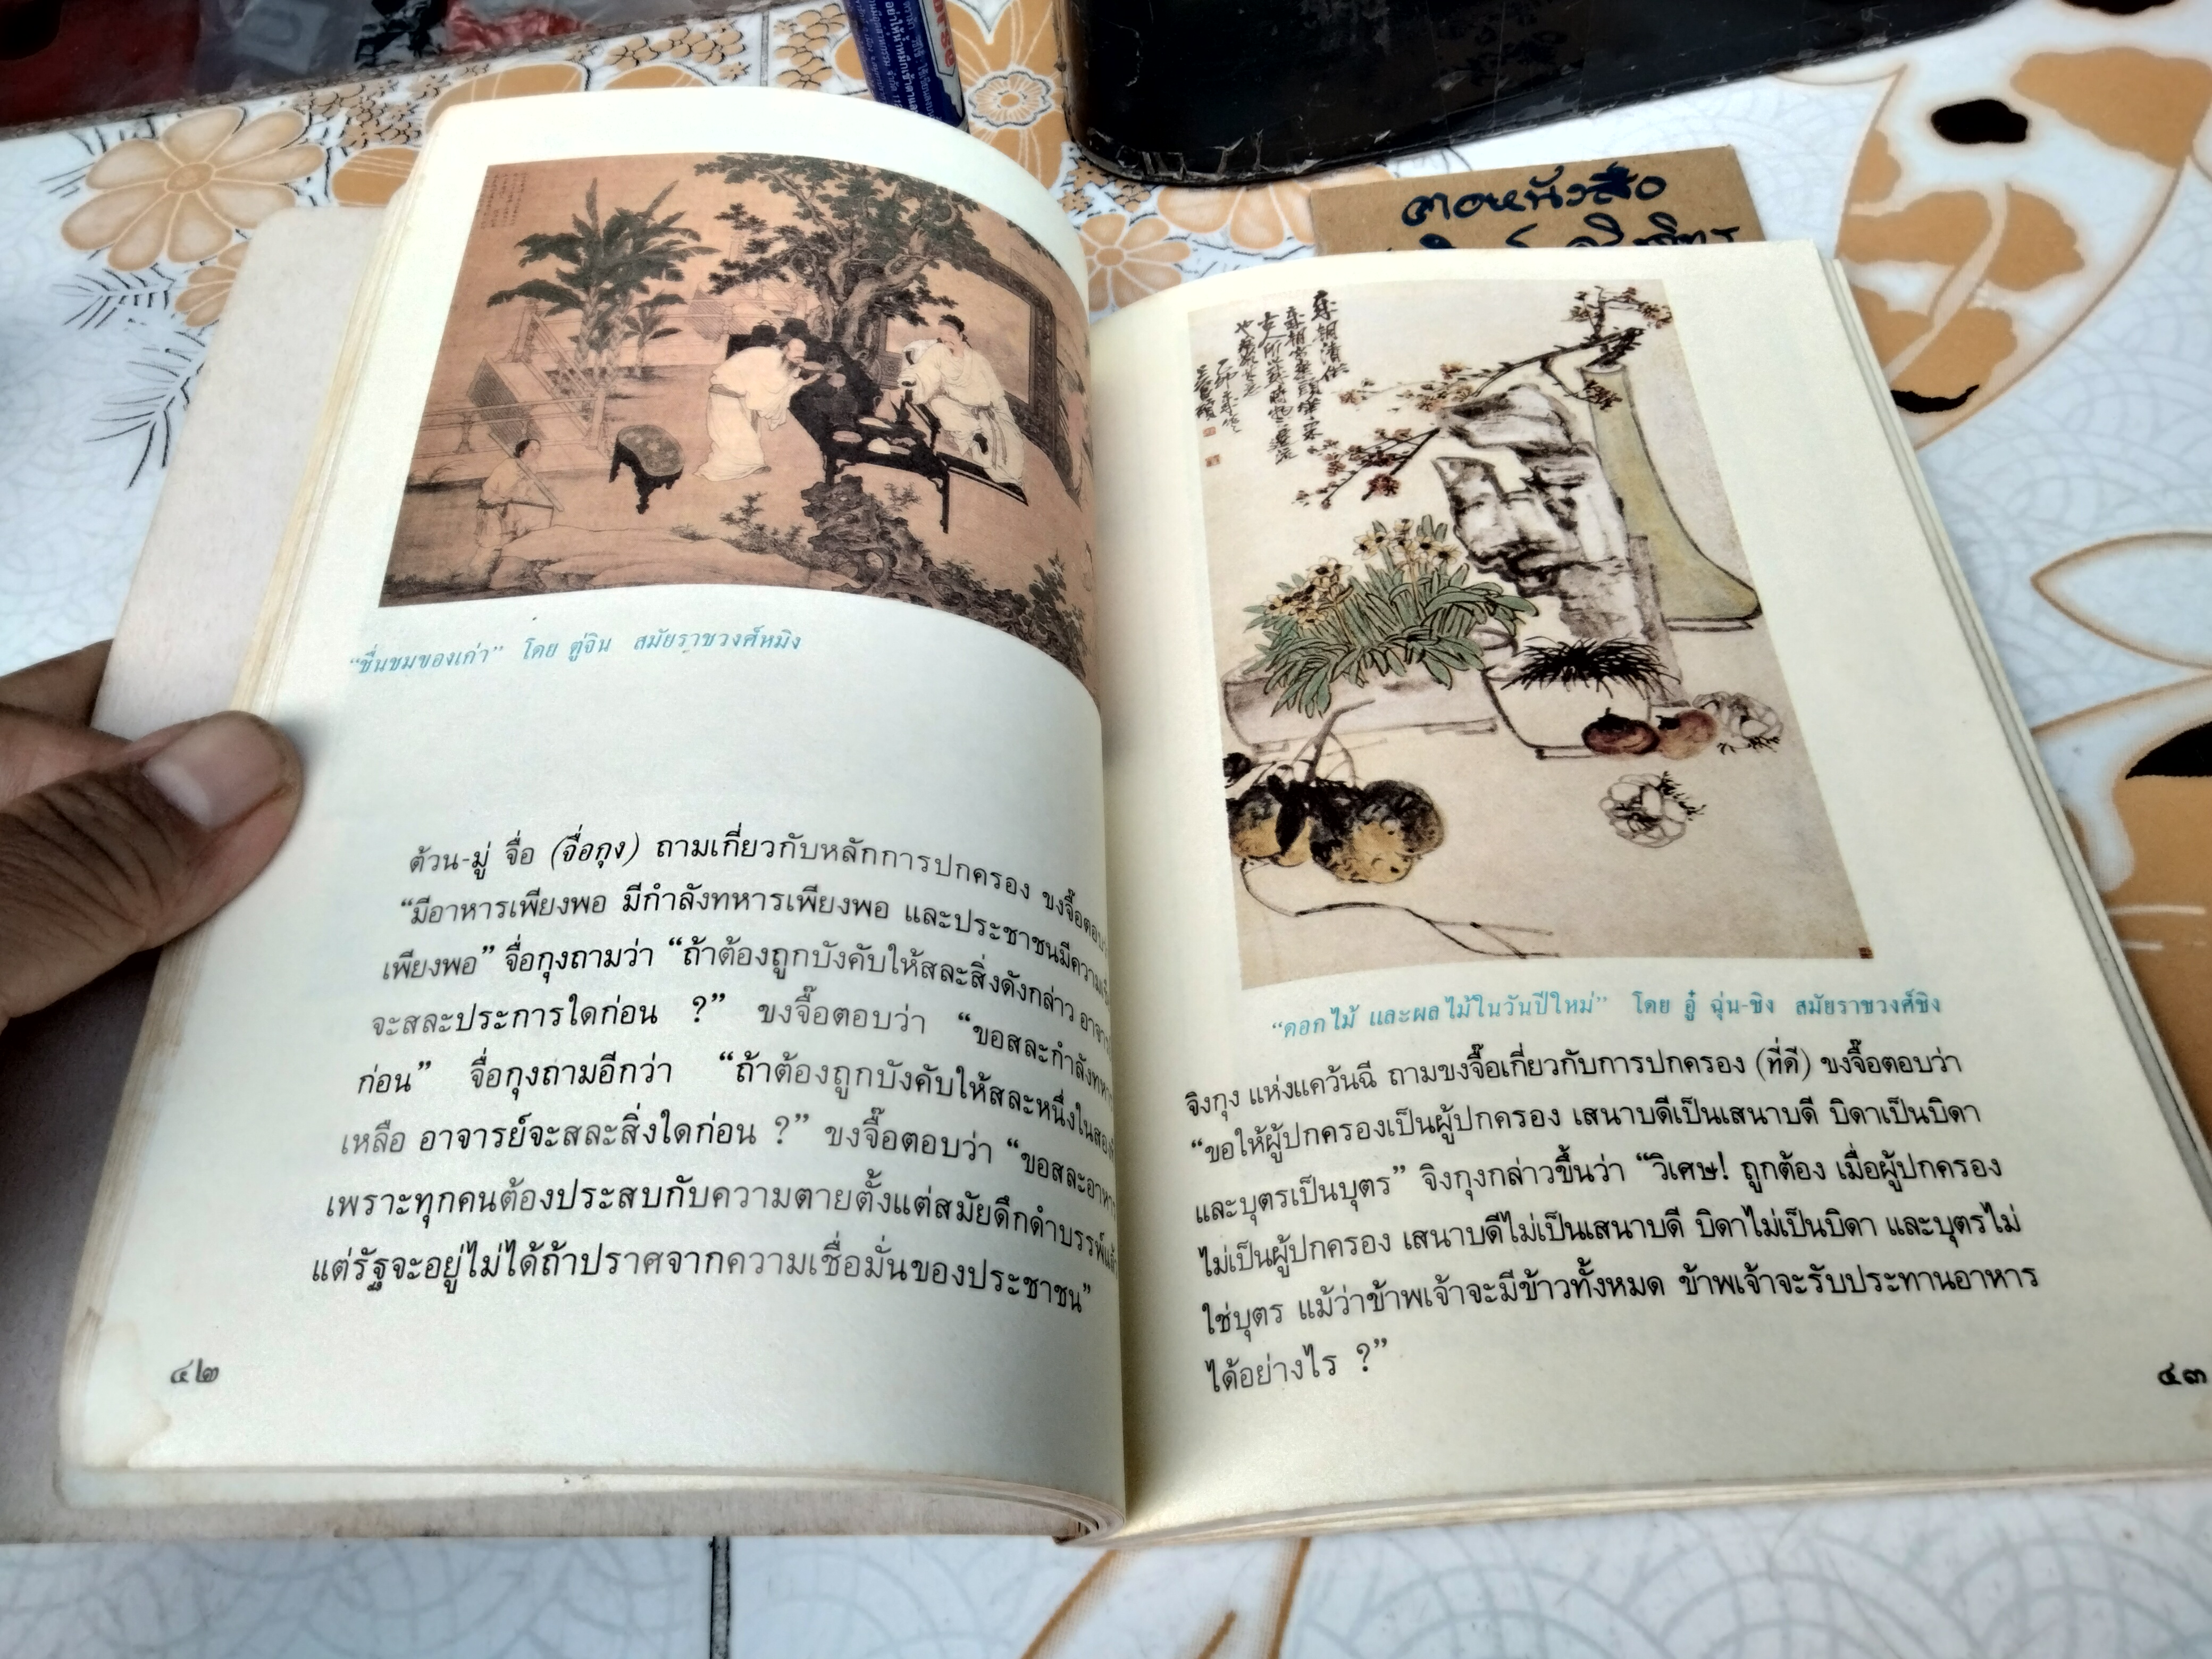 ตอหนังสือ
“ชื่นชมของเก่า” โดย ตู่จิน สมัยราชวงศ์หมิง
ต้วน-มู่ จื่อ (จื่อกุง) ถามเกี่ยวกับหลักการปกครอง ขงจื๊อตอบ
“มีอาหารเพียงพอ มีกำลังทหารเพียงพอ และประชาชนมีความ
เพียงพอ” จื่อกุงถามว่า “ถ้าต้องถูกบังคับให้สละสิ่งดังกล่าว
จะสละประการใดก่อน ?” ขงจื๊อตอบว่า “ขอสละกำลัง
ก่อน” จื่อกุงถามอีกว่า “ถ้าต้องถูกบังคับให้สละหนึ่งใน
เหลือ อาจารย์จะสละสิ่งใดก่อน ?” ขงจื๊อตอบว่า “ขอสละอาหาร
เพราะทุกคนต้องประสบกับความตายตั้งแต่สมัยดึกดำบรรพ์
แต่รัฐจะอยู่ไม่ได้ถ้าปราศจากความเชื่อมั่นของประชาชน”
๔๒
“ดอกไม้ และผลไม้ในวันปีใหม่” โดย อู๋ ฉุ่น-ชิง สมัยราชวงศ์ชิง
จิงกุง แห่งแคว้นฉี ถามขงจื๊อเกี่ยวกับการปกครอง (ที่ดี) ขงจื๊อตอบว่า
“ขอให้ผู้ปกครองเป็นผู้ปกครอง เสนาบดีเป็นเสนาบดี บิดาเป็นบิดา
และบุตรเป็นบุตร” จิงกุงกล่าวขึ้นว่า “วิเศษ! ถูกต้อง เมื่อผู้ปกครอง
ไม่เป็นผู้ปกครอง เสนาบดีไม่เป็นเสนาบดี บิดาไม่เป็นบิดา และบุตรไม่
ใช่บุตร แม้ว่าข้าพเจ้าจะมีข้าวทั้งหมด ข้าพเจ้าจะรับประทานอาหาร
ได้อย่างไร ?”
๔๓